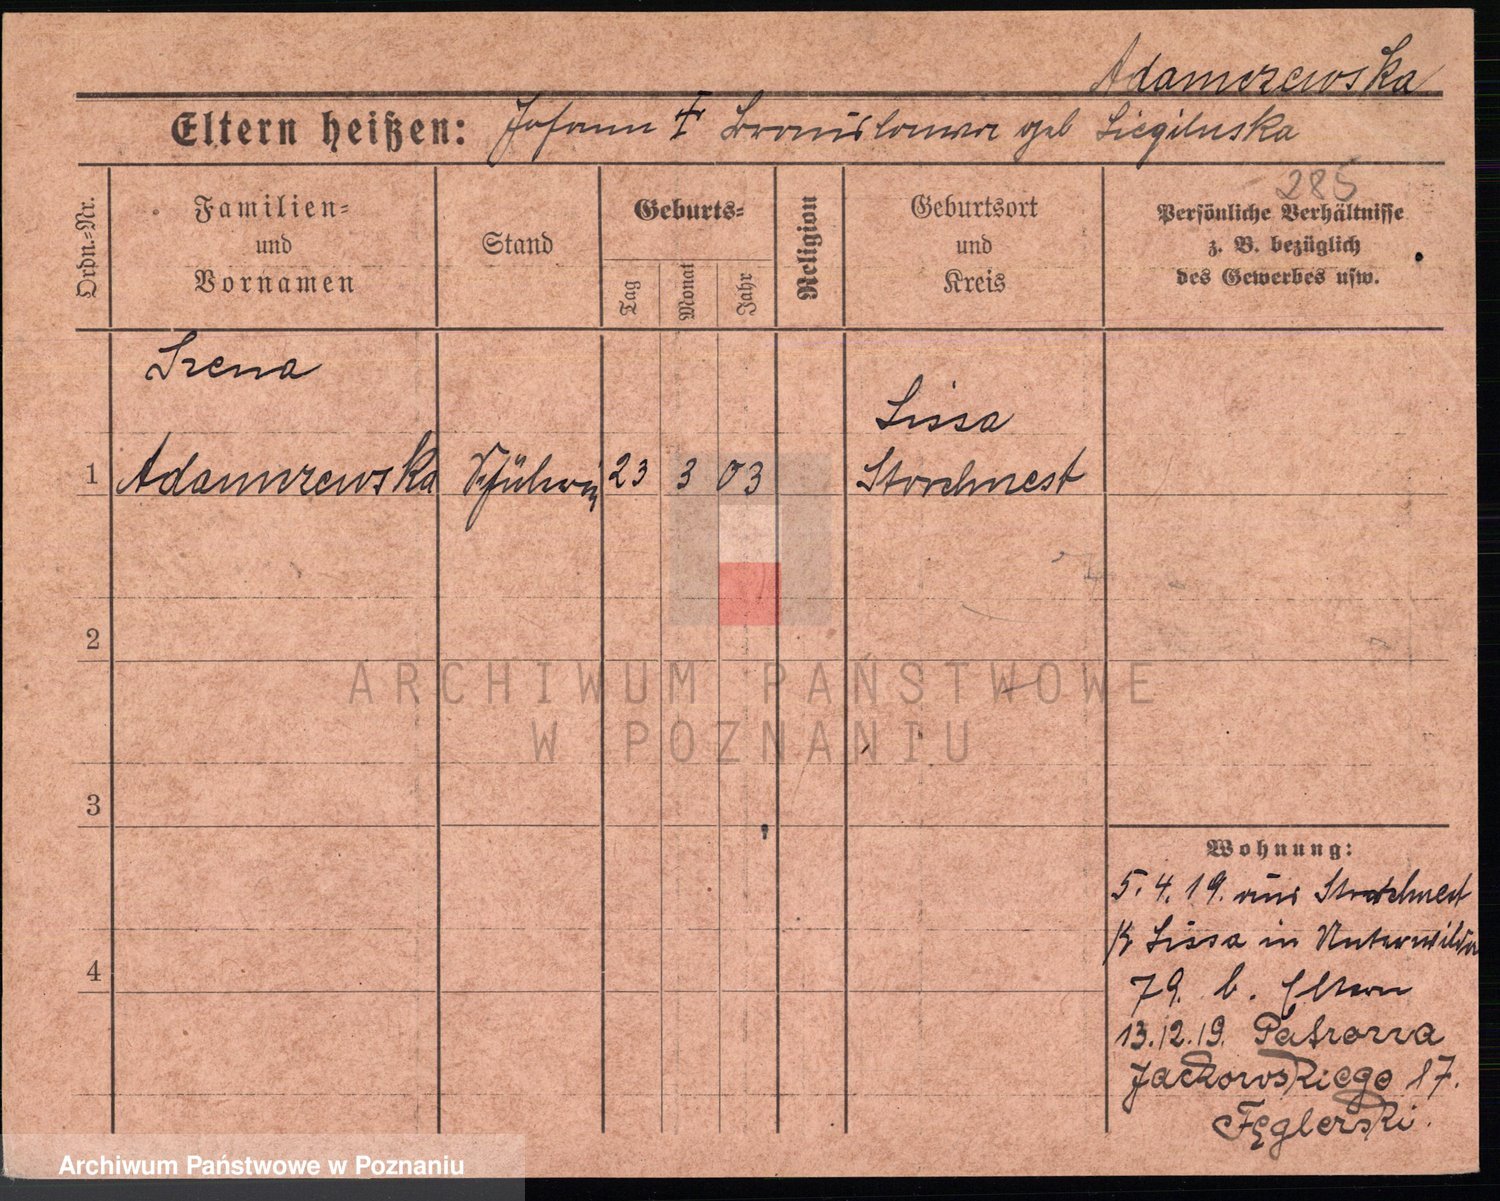 Adamczewska
Eltern heißen: Johann † Bronislawa geb
285
Ordn.=Nr.
Familien=
und
Vornamen
Stand
Geburts=
Tag
Monat
Jahr
Religion
Geburtsort
und
Kreis
Persönliche Verhältnisse
z. B. bezüglich
des Gewerbes usw.
Irena
Lissa
1 Adamczewska Schülerin 23 3 03 Storchnest
2
3
4
Wohnung:
5.4.19. aus Storchnest
K Lissa in Unterwilda
79. b. Eltern
13.12.19. Patrona
Jackowskiego 17.
Fęglerski.
ARCHIWUM PAŃSTWOWE
W POZNANIU
Archiwum Państwowe w Poznaniu